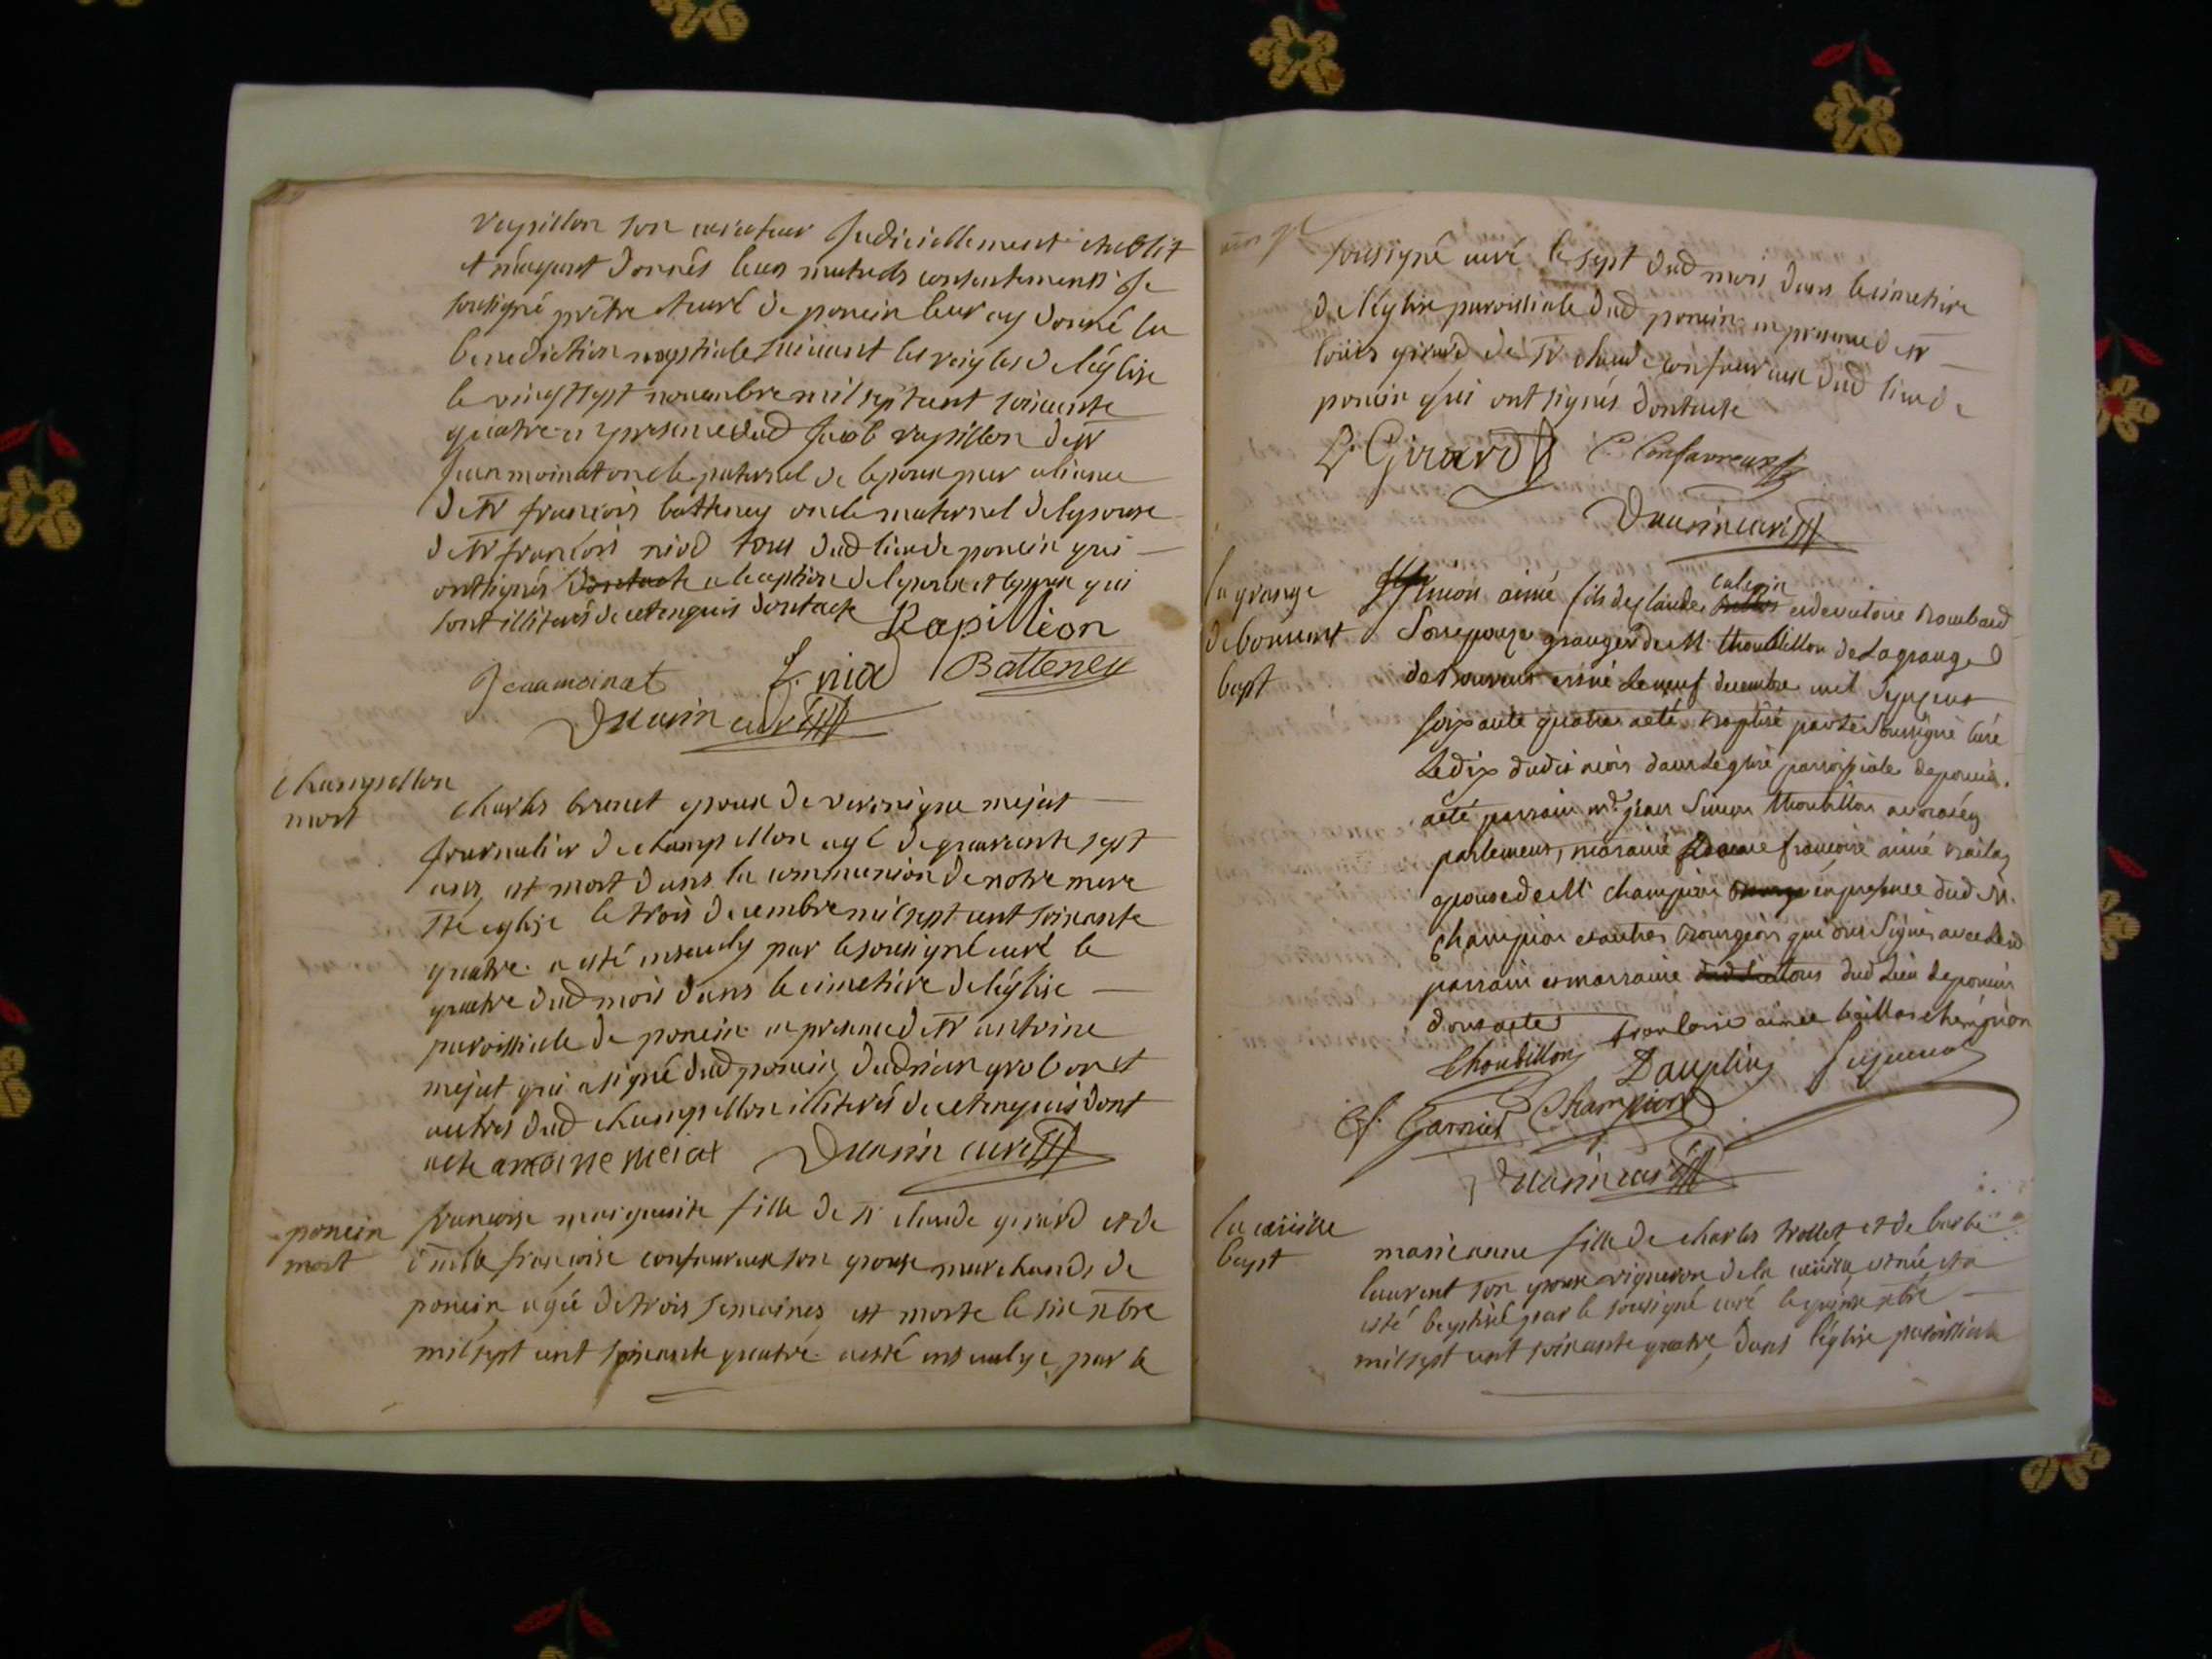 rapillon son curateur Judiciellement etablit
et m'ayant donnés leurs mutuels consentements Je
soussigné prêtre et curé de poncin leur ay donné la
benediction nuptiale suivant les reigles de l'église
le vingt sept novembre mil sept cent soixante
quatre en presence dud Jacob rapillon de Sr
Jean moinat oncle paternel de l'epoux par aliance
de Sr francois batteney oncle maternel de l'epouse
de Sr francois niod tous dud lieu de poncin qui
ont signés a l'exception de l'epoux et epouse qui
sont illiterés de ce enquis dont acte Rapillion
Jean moinat f. niod Batteney
curé
champeillon
mort
charles brunet epoux de veronique mejat
journalier de champeillon agé de quarante sept
ans, est mort dans la communion de notre mere
Ste eglise le trois decembre mil sept cent soixante
quatre a esté insevely par le soussigné curé le
quatre dud mois dans le cimetiere de l'église
paroissiale de poncin en presence de Sr antoine
mejat qui a signé dud poncin, et
autres dud champeillon illiterés de ce enquis dont
acte antoine meiat curé
poncin
mort
francoise marguerite fille de Sr claude girard et de
francoise confavreux son epouse marchands de
poncin, agée de trois semaines, est morte le six xbre
mil sept cent soixante quatre a esté insevelye par le
soussigné curé le sept dud mois dans le cimetiere
de l'église paroissiale dud poncin en presence de Sr
louis girard de Sr claude confavreux dud lieu de
poncin qui ont signés dont acte
L. Girard C. Confavreux
curé
la grange
de bonimont
bapt
Simon aimé fils de claude
son epouse granger de M. Thoubillon de Lagrange
est né le neuf decembre mil sept cent
soixante quatre a eté baptisé par le soussigné curé
Le dix dudit mois dans Léglise paroissiale de poncin.
a eté parrain Mr jean Simon Thoubillon avocat en
parlement, maraine francoise aimé
epouse de M champion en presence dud M.
champion et autres bourgeois qui ont signés avec led
parrain et marraine dud Lieu de poncin
dont acte champion
Thoubillon Dauplin
Garnier Champion
curé
bapt
marie anne fille de charles trollet et de barbe
laurent son epouse vigneron de la est née et a
esté baptisée par le soussigné curé le quinze xbre
mil sept cent soixante quatre, dans l'église paroissiale